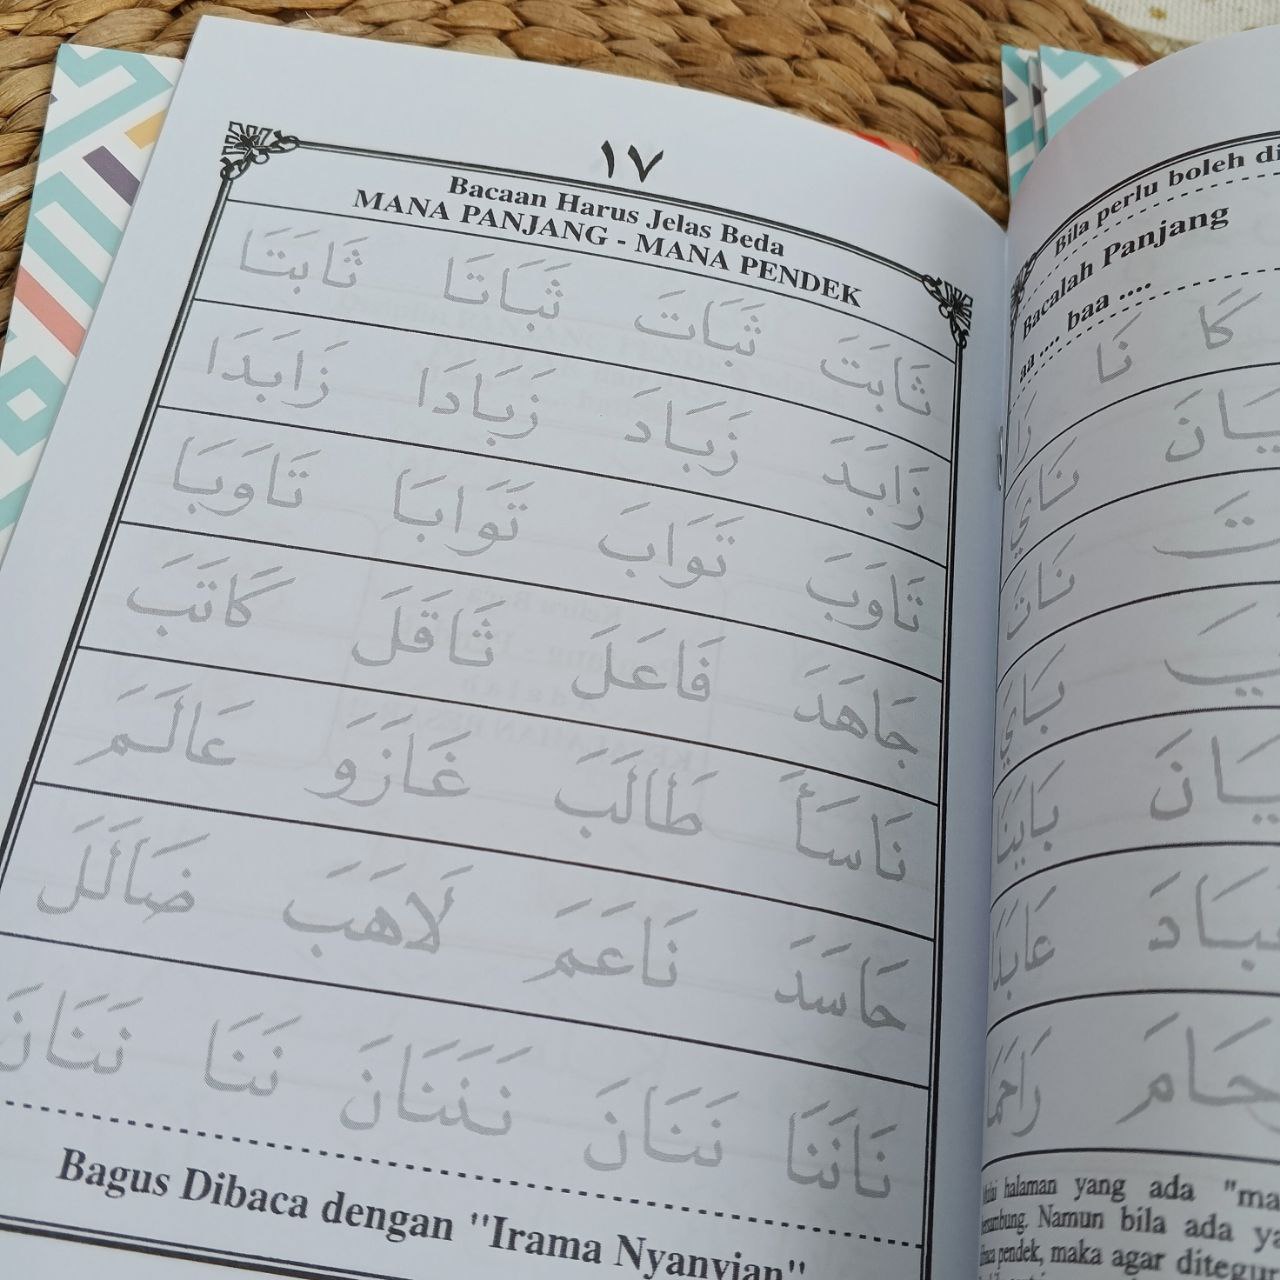 ١٧
Bacaan Harus Jelas Beda
MANA PANJANG - MANA PENDEK
ثَابَتَ ثَبَاتَ ثَبَاتَا ثَابَتَا
زَابَدَ زَبَادَ زَبَادَا زَابَدَا
تَاوَبَ تَوَابَ تَوَابَا تَاوَبَا
جَاهَدَ فَاعَلَ ثَاقَلَ كَاتَبَ
نَاسَأَ طَالَبَ غَازَوَ عَالَمَ
حَاسَدَ نَاعَمَ لَاهَبَ ضَالَلَ
نَانَنَا نَنَانَ نَنَنَانَ نَنَا نَنَانَ
Bagus Dibaca dengan "Irama Nyanyian"
Bila perlu boleh di
Bacalah Panjang
aa .... baa ....
كَا نَا
يَانَ نَايَ
نَاتَ
بَايَ
يَانَ بَايَنَا
بَادَ عَابَدَا
حَامَ رَاحَمَا
halaman yang ada "ma
Namun bila ada ya
pendek, maka agar ditegur